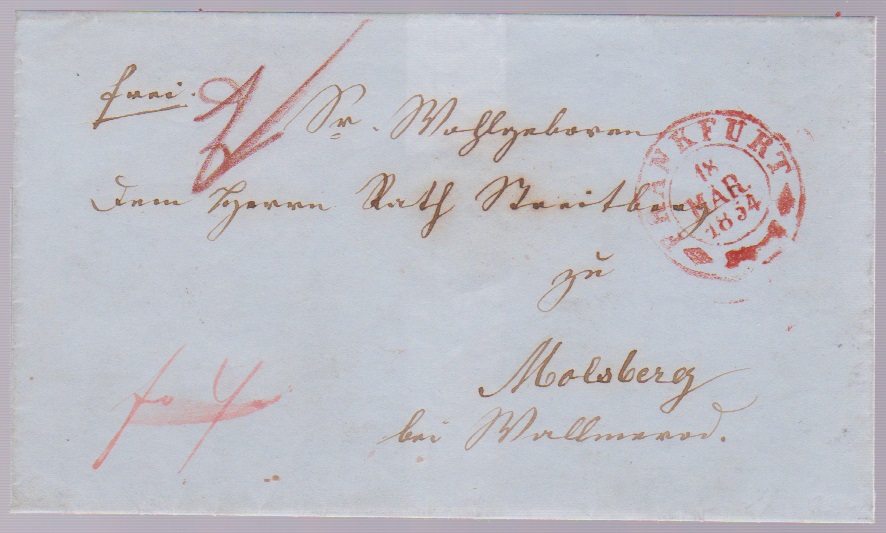 frei.
Sr. Wohlgeboren
dem Herrn Rath Streitberg
zu
Molsberg
bei Wallmerod.
FRANKFURT
18
MAR.
1854